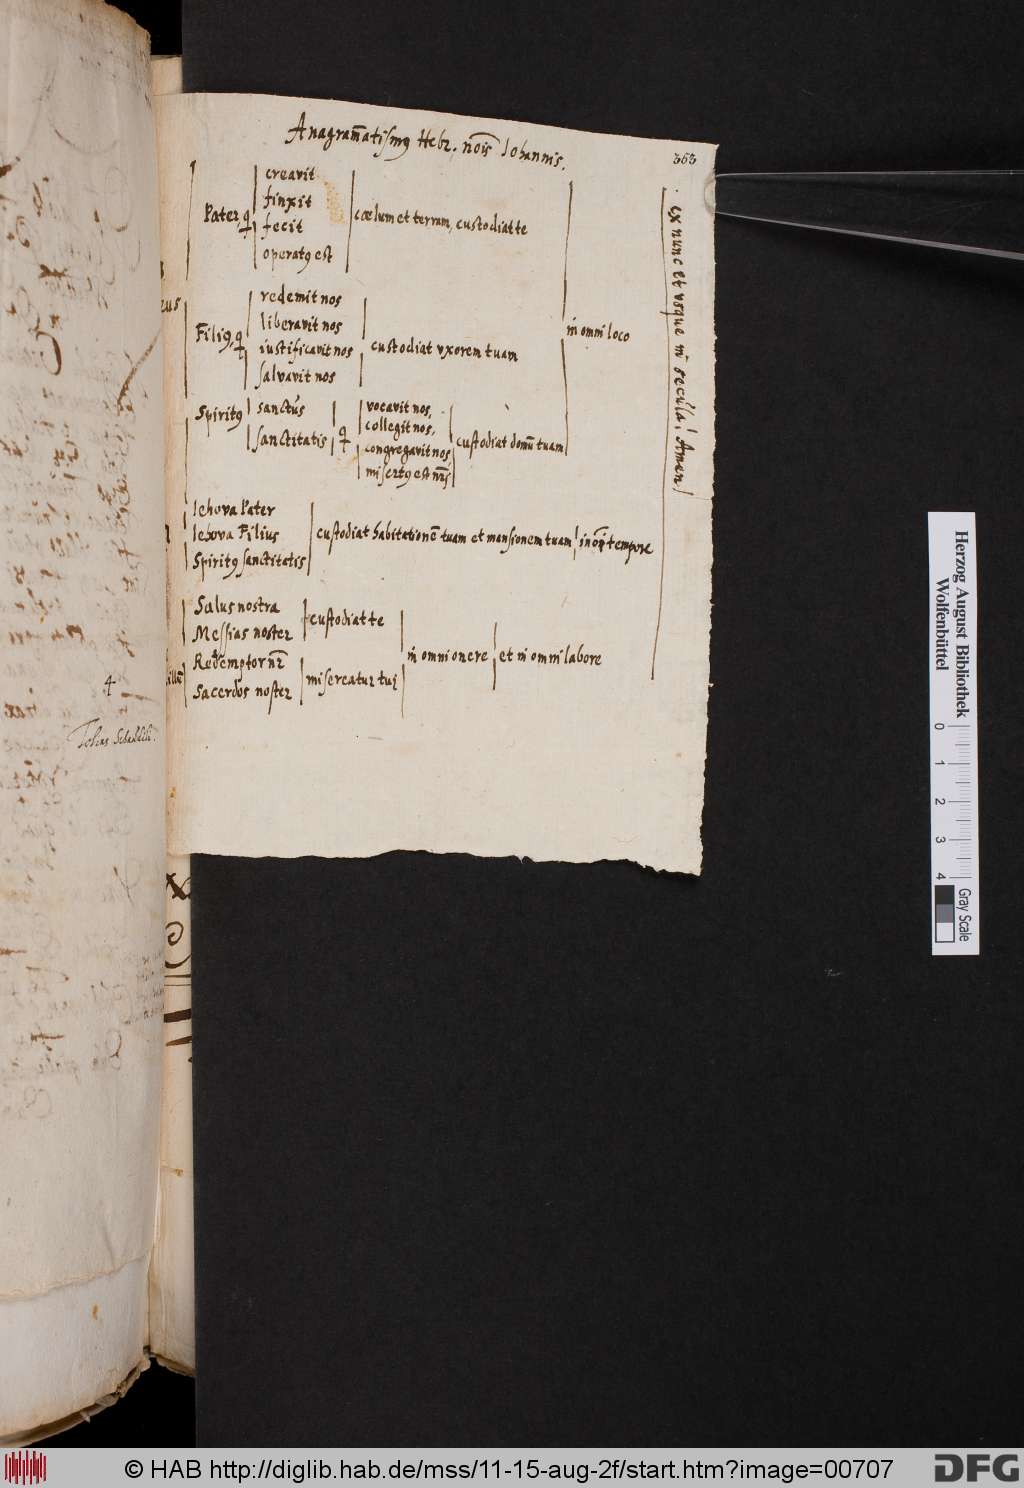 363
Anagram̄atismꝰ Hebr. nōis Iohannis.
creavit
finxit
Pater, q
fecit
operatꝰ est
cœlum et terram, custodiat te
redemit nos
liberavit nos
Filiꝰ, q
iustificavit nos
salvavit nos
custodiat vxorem tuam
in omni loco
Spiritꝰ
sanctus
sanctitatis
q
vocavit nos,
collegit nos,
congregavit nos,
misertꝰ est nr̄i
custodiat domū tuam
Iehova Pater
Iehova Filius
Spiritꝰ sanctitatis
custodiat habitationē tuam et mansionem tuam
in oī tempore
Salus nostra
Messias noster
custodiat te
Redemptor nr̄
Sacerdos noster
misereatur tui
in omni onere
et in omni labore
ex nunc et vsque in secula! Amen
4
Tobias
Herzog August Bibliothek
Wolfenbüttel
0 1 2 3 4
Gray Scale
© HAB http://diglib.hab.de/mss/11-15-aug-2f/start.htm?image=00707
DFG